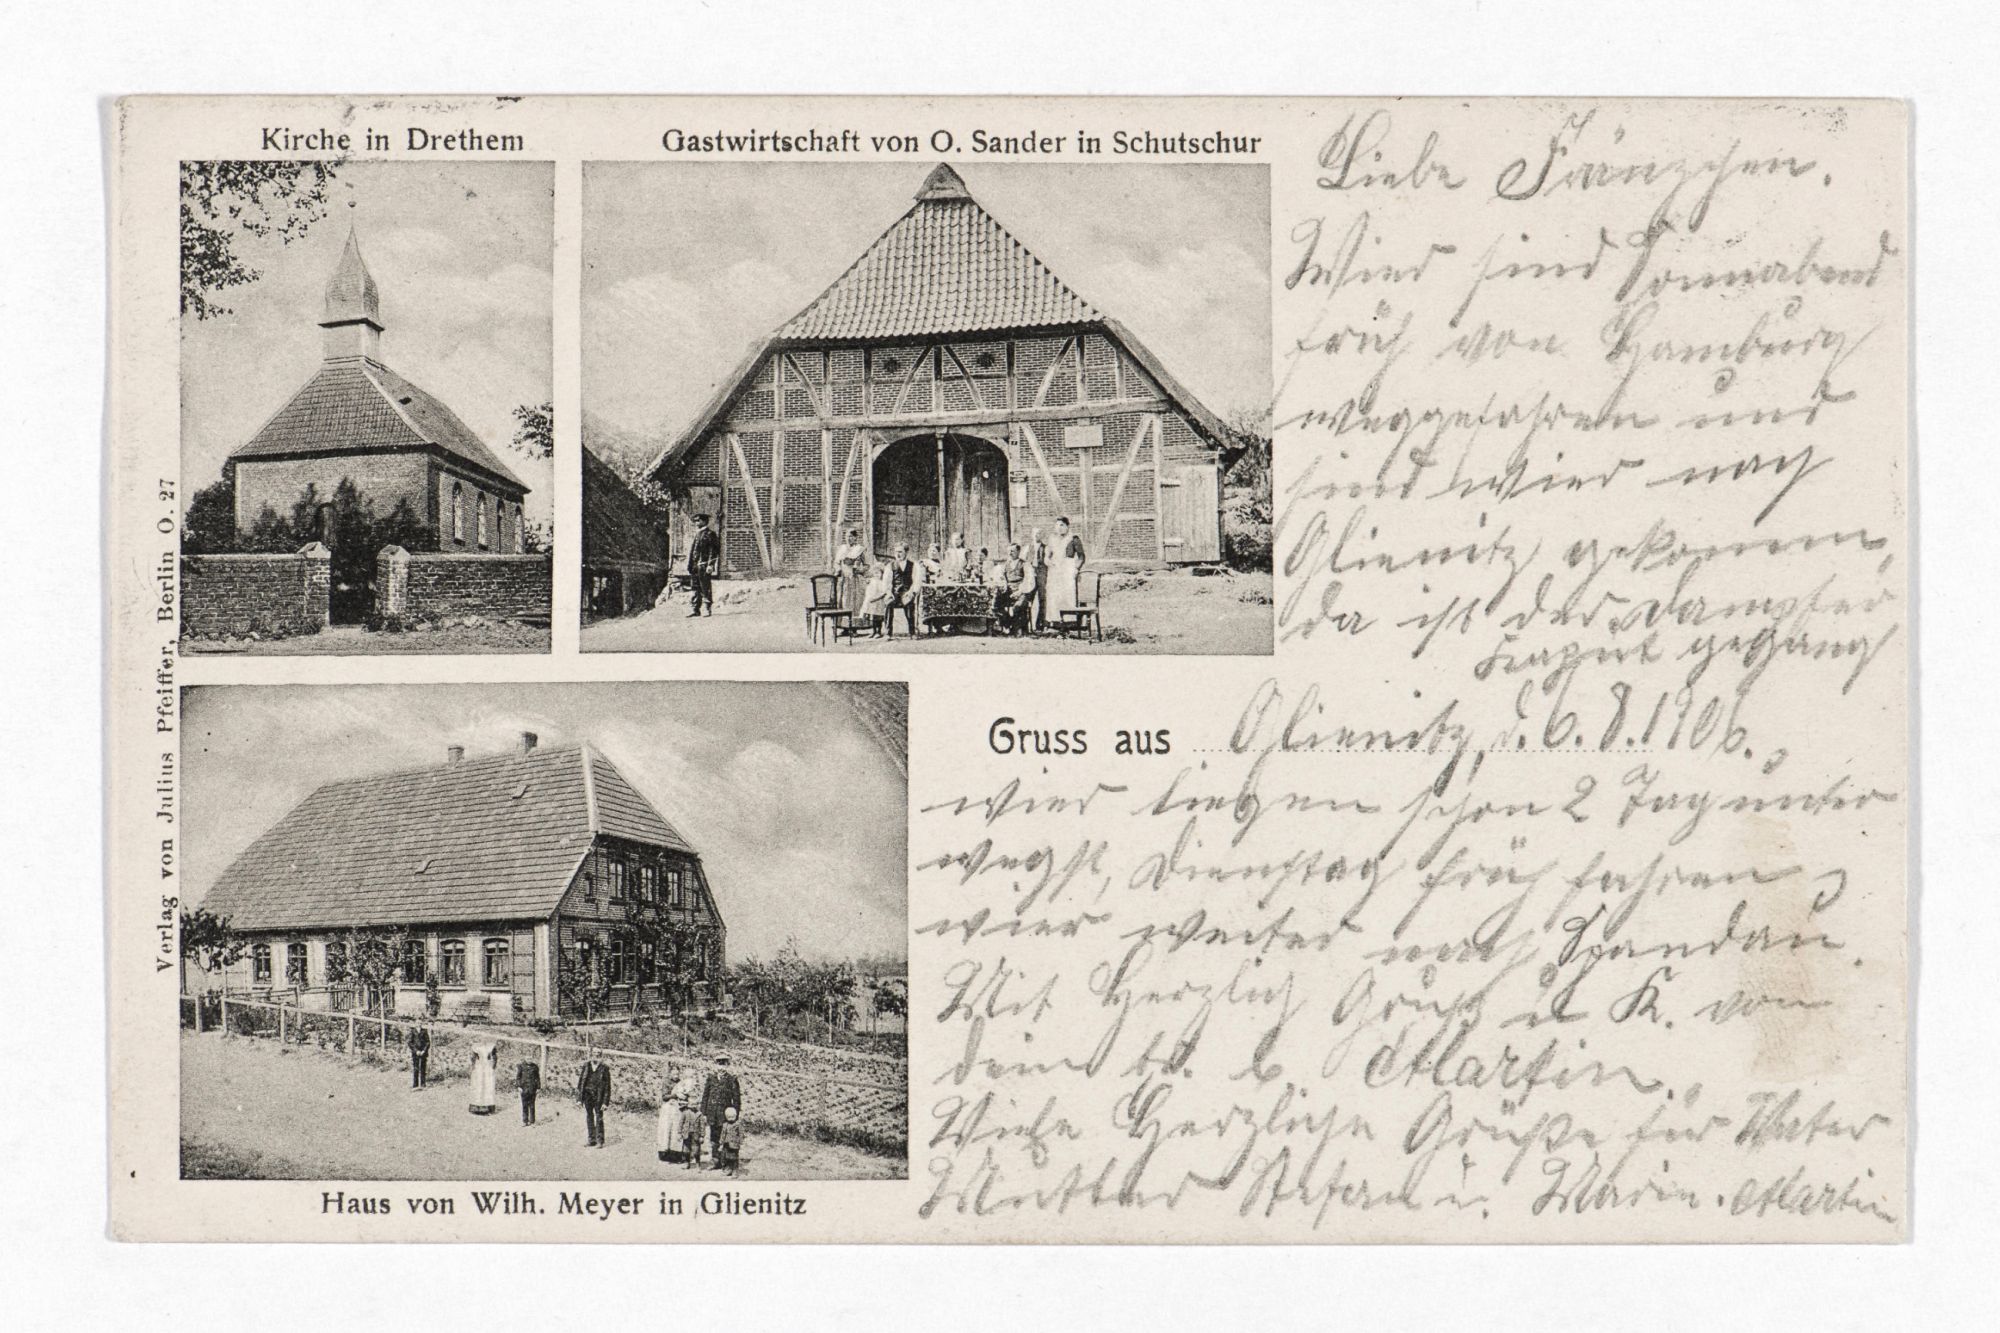 Kirche in Drethem
Gastwirtschaft von O. Sander in Schutschur
Liebe Fränzchen.
Wier sind Sonnabend
früh von Hamburg
weggefahren und
sind wier nach
Glienitz gekommen,
da ist der Dampfer
kaput gegang
Gruss aus Glienitz, d. 6.8.1906.,
wier liegen schon 2 Tag unter
wegst, Dienstag früh fahren
wier weiter nach Spandau.
Mit Herzlich Gruß u K. von
dein Martin.
Viele Herzliche Grüße für Vater
Mutter Stefan u. Marie. Martin
Haus von Wilh. Meyer in Glienitz
Verlag von Julius Pfeiffer, Berlin O. 27